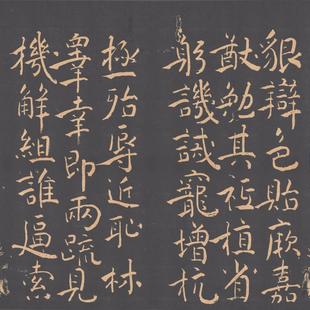 貌辯色貽厥嘉
猷勉其祗植省
躬譏誡寵增抗
極殆辱近耻林
皋幸即兩疏見
機解組誰逼索